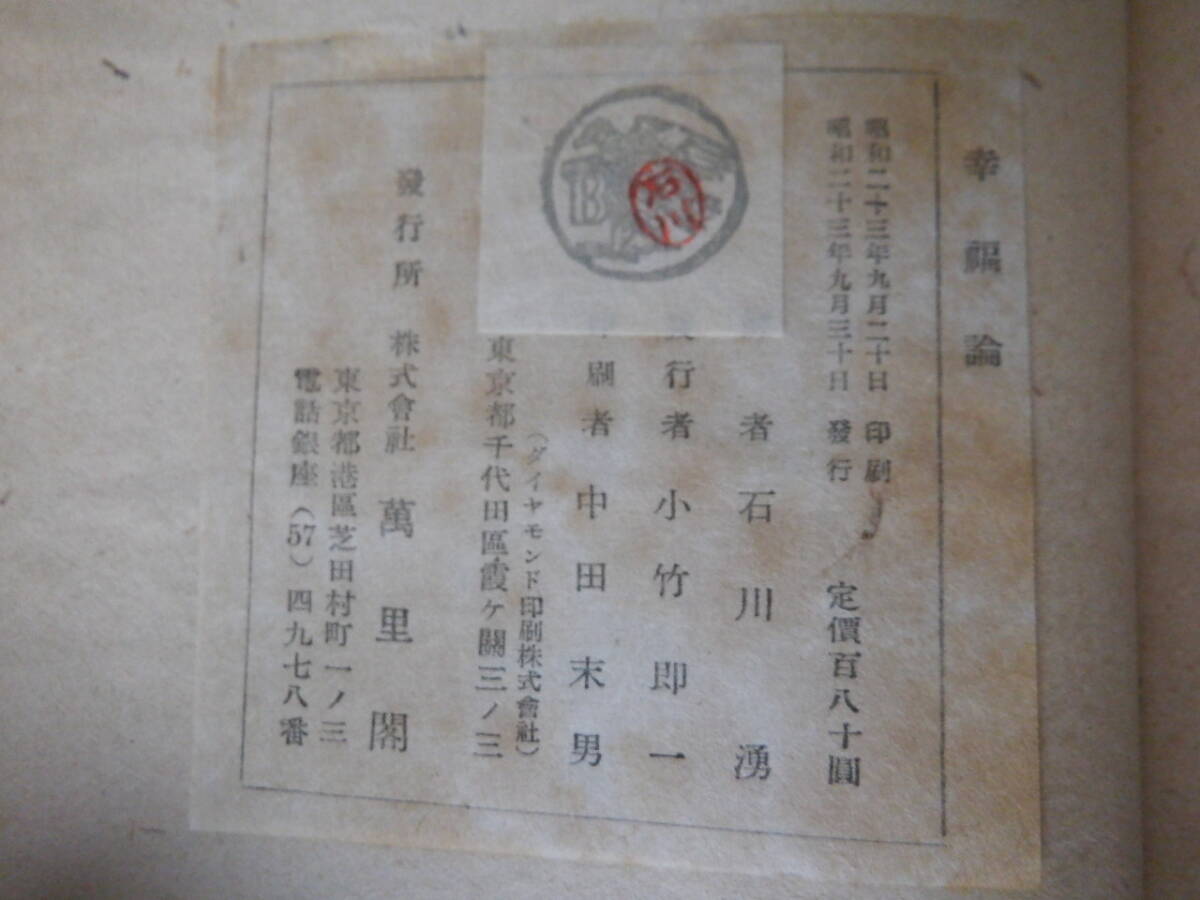 幸福論
昭和二十三年九月二十日 印刷
昭和二十三年九月三十日 發行
定價百八十圓
者 石川湧
行者 小竹即一
刷者 中田末男
(ダイヤモンド印刷株式會社)
東京都千代田區霞ケ關三ノ三
發行所 株式會社 萬里閣
東京都港區芝田村町一ノ三
電話銀座(57)四九七八番
石川
B